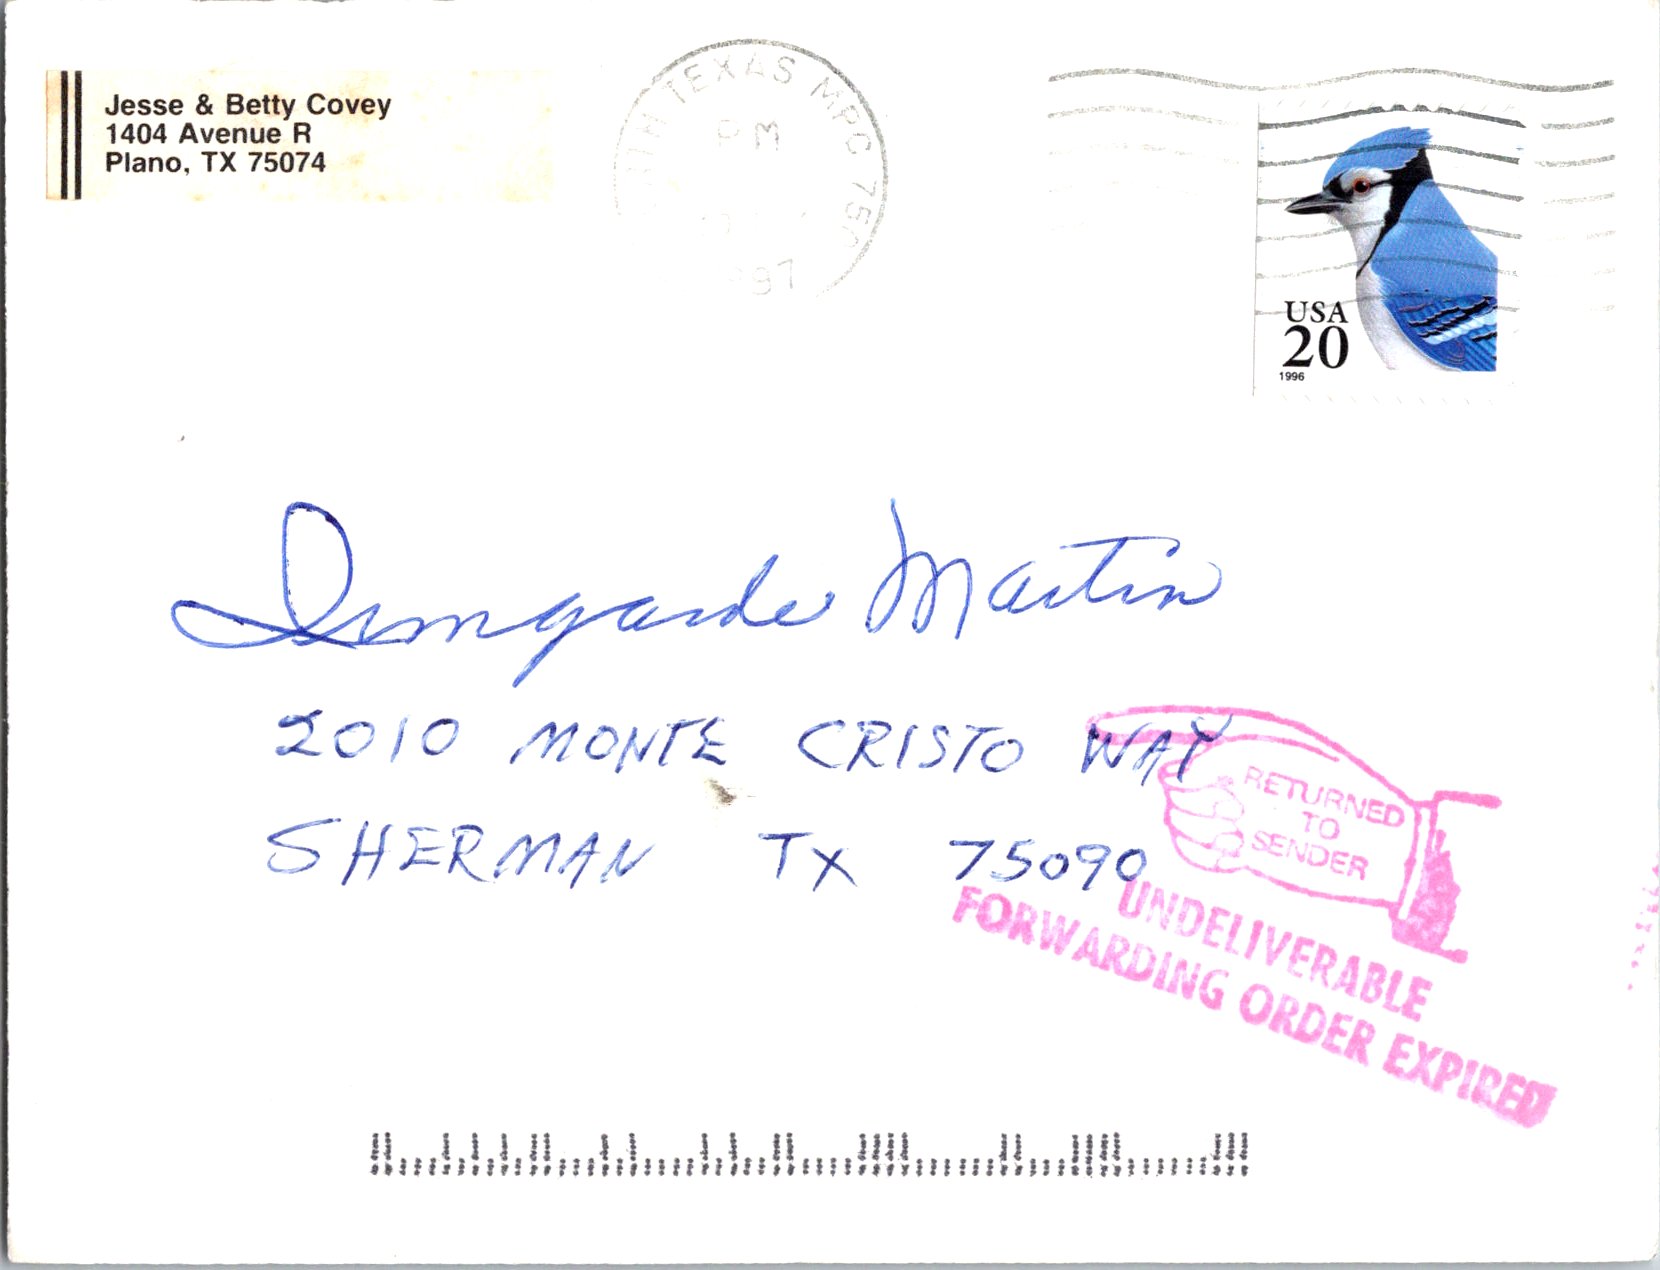 Jesse & Betty Covey
1404 Avenue R
Plano, TX 75074
TEXAS MPC 750
PM
1997
USA
20
1996
Irmgarde Martin
2010 MONTE CRISTO WAY
SHERMAN TX 75090
RETURNED
TO
SENDER
UNDELIVERABLE
FORWARDING ORDER EXPIRED